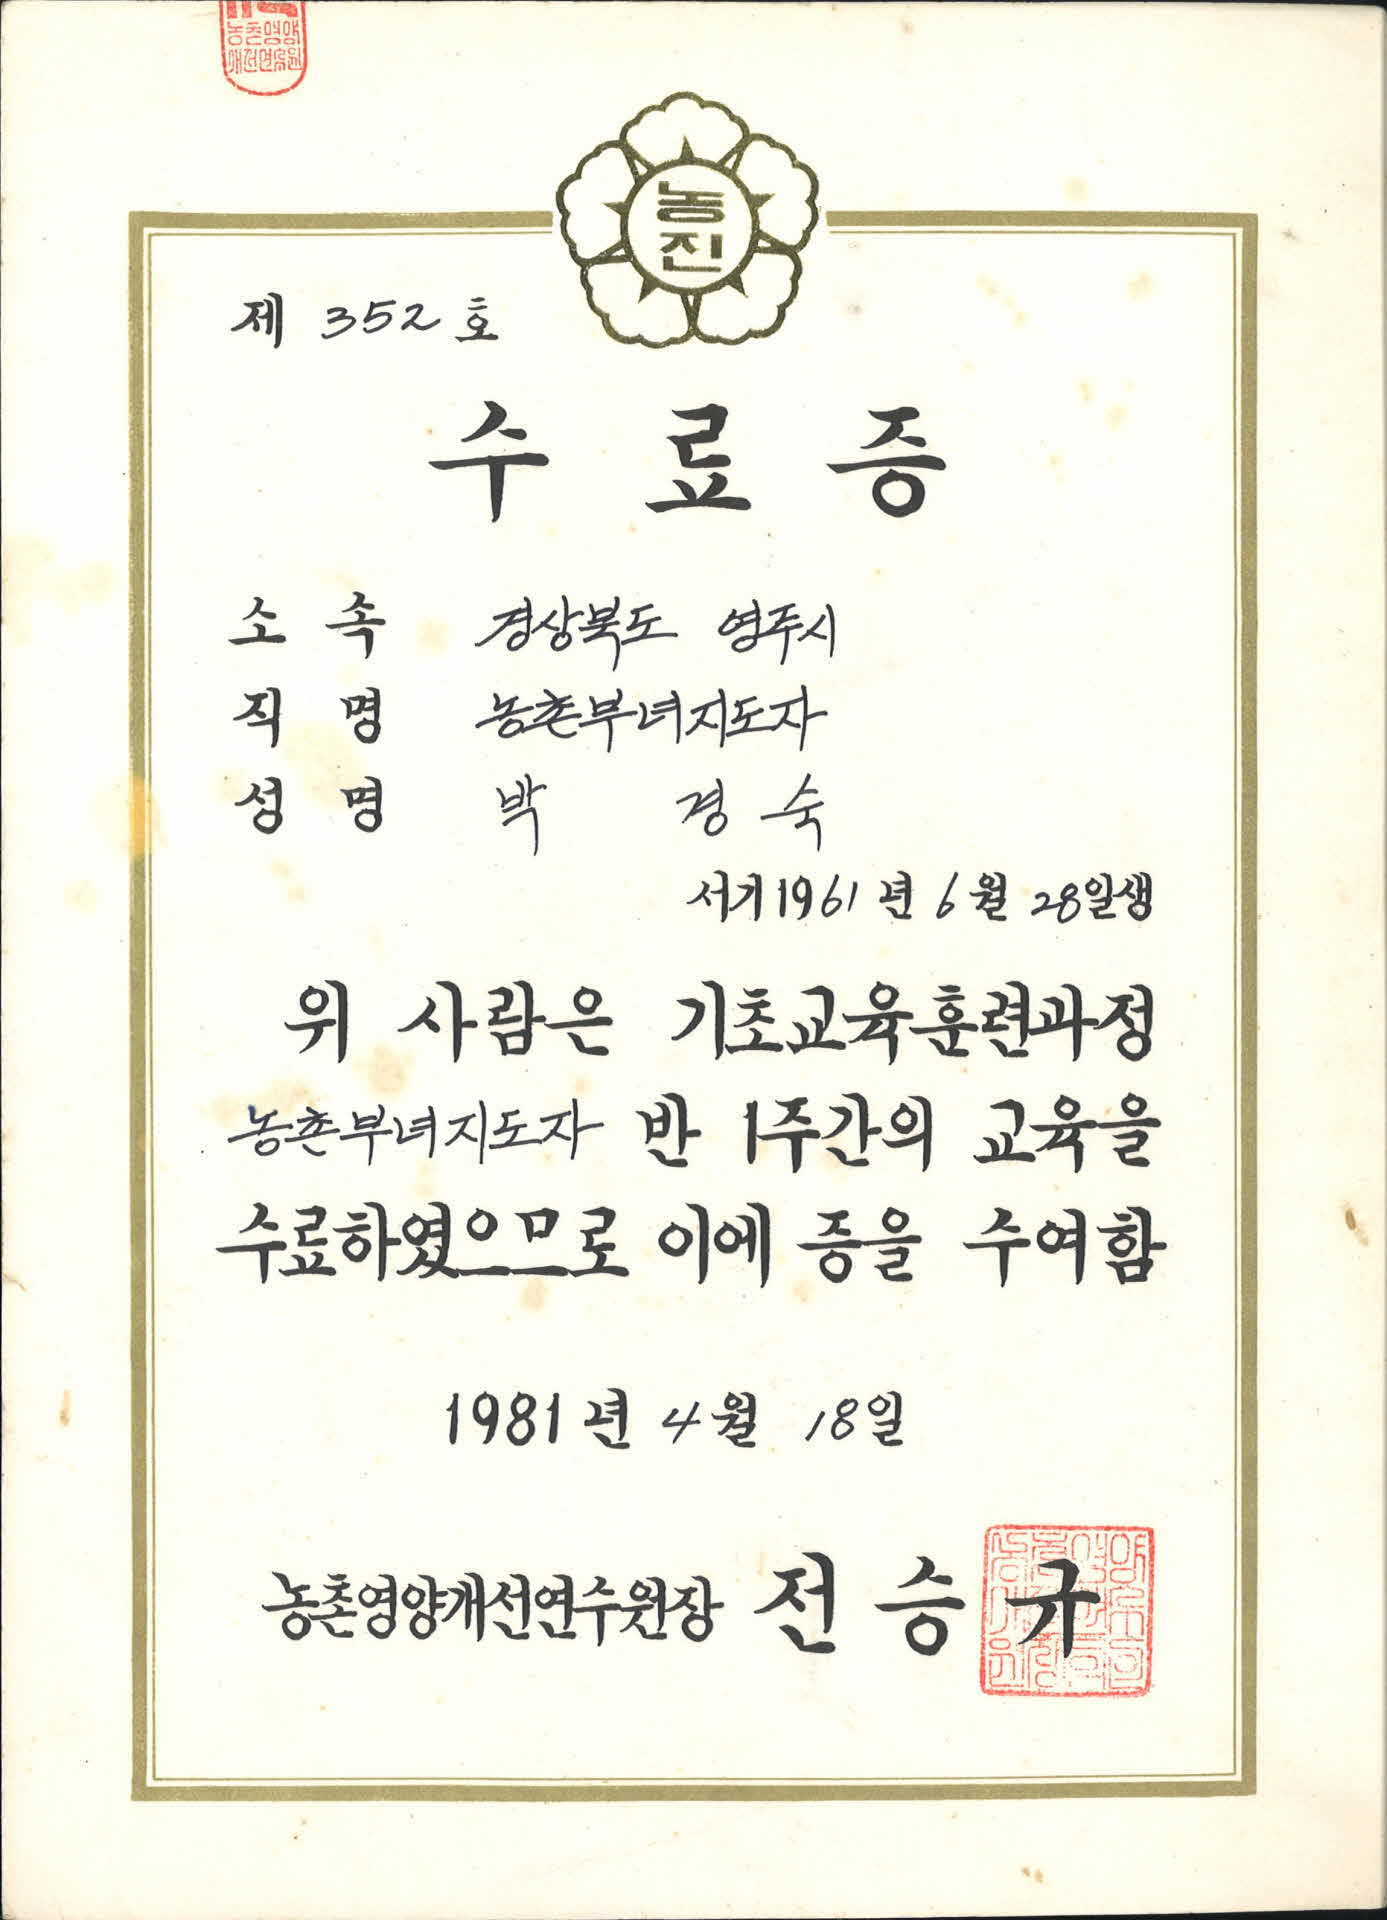 농촌영양
개선연수원
농진
제 352 호
수료증
소속 경상북도 영주시
직명 농촌부녀지도자
성명 박 경 숙
서기 1961년 6월 28일생
위 사람은 기초교육훈련과정
농촌부녀지도자 반 1주간의 교육을
수료하였으므로 이에 증을 수여함
1981년 4월 18일
농촌영양개선연수원장 전승규